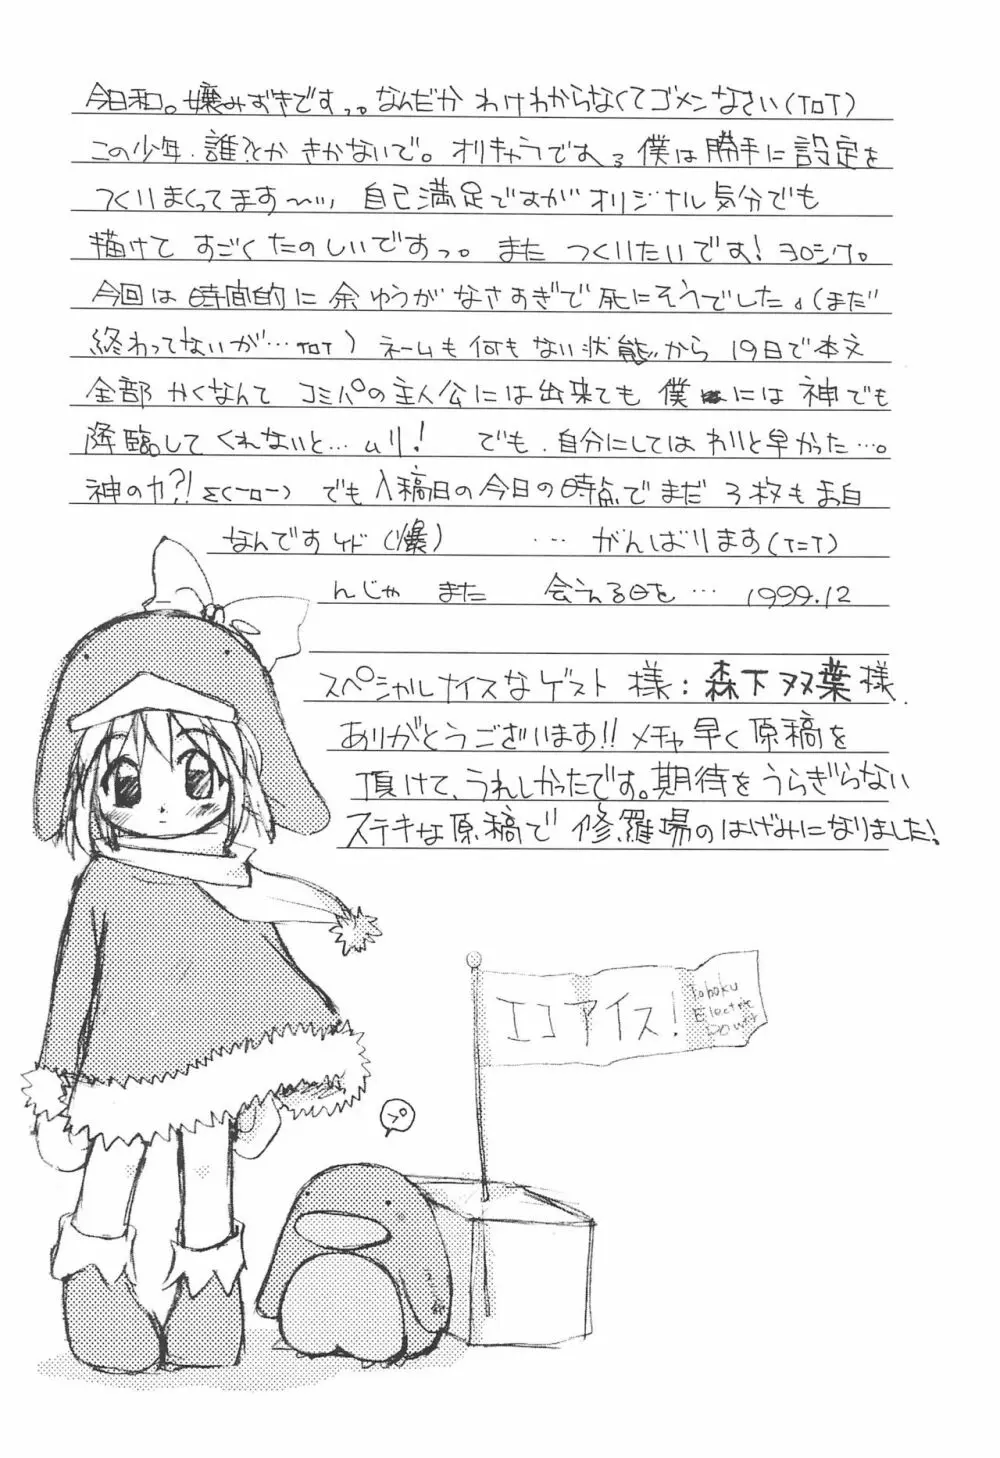 今日和。嬢みずきですっ。なんだか わけわからなくてゴメンなさい(ToT)
この少年、誰?とか きかないで。オリキャラです。僕は勝手に設定を
つくりまくってます〜ッッ 自己満足ですがオリジナル気分でも
描けて すごくたのしいですっ。また つくりたいです!ヨロシク。
今回は時間的に余ゆうがなさすぎで死にそうでした。(まだ
終わってないが…ToT) ネームも何もない状態から 19日で本文
全部 かくなんて コミパの主人公には出来ても 僕には神でも
降臨してくれないと…ムリ! でも、自分にしてはわりと早かった…。
神の力?!Σ(ーロー) でも入稿日の今日の時点でまだ3枚もま白
なんですケド(爆) … がんばります(T=T)
んじゃ また 会える日を… 1999.12
スペシャルナイスなゲスト 様:森下双葉様
ありがとうございます!!メチャ早く原稿を
頂けて、うれしかったです。期待をうらぎらない
ステキな原稿で 修羅場のはげみになりました!
エコアイス!
Tohoku
Electric
Power